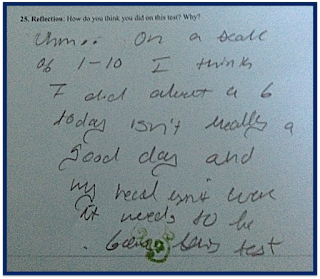 25. Reflection: How do you think you did on this test? Why?
Uhm.. On a scale
of 1-10 I think
I did about a 6
today isn't really a
good day and
my head isn't were
it needs to be
test